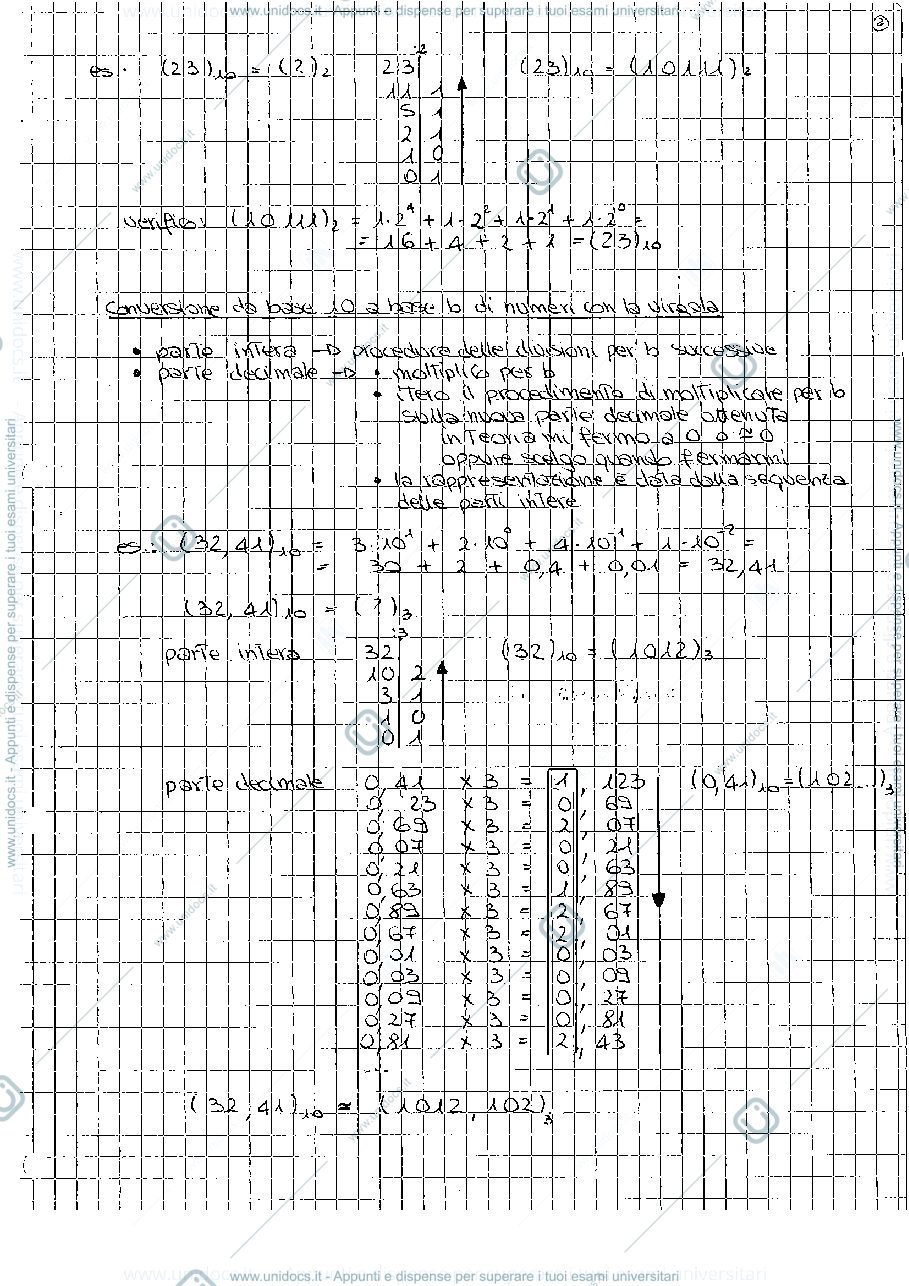 www.unidocs.it - Appunti e dispense per superare i tuoi esami universitari
2
es. (23)₁₀ = (?)₂ 23 :2 (23)₁₀ = (10111)₂
11 1
5 1
2 1
1 0
0 1
verifica: (10111)₂ = 1·2⁴ + 1·2² + 1·2¹ + 1·2⁰ =
= 16 + 4 + 2 + 1 = (23)₁₀
Conversione da base 10 a base b di numeri con la virgola
• parte intera → procedura delle divisioni per b successive
• parte decimale → • moltiplico per b
• itero il procedimento di moltiplicare per b
sulla nuova parte decimale ottenuta
in teoria mi fermo a 0 o ≅ 0
oppure scelgo quando fermarmi
• la rappresentazione è data dalla sequenza
delle parti intere
es.: (32,41)₁₀ = 3·10¹ + 2·10⁰ + 4·10¹ + 1·10⁻² =
= 30 + 2 + 0,4 + 0,01 = 32,41
(32,41)₁₀ = (?)₃
parte intera 32 :3 (32)₁₀ = (1012)₃
10 2
3 1
1 0
0 1
parte decimale 0,41 x 3 = 1,123 (0,41)₁₀ = (102...)₃
0,23 x 3 = 0,69
0,69 x 3 = 2,07
0,07 x 3 = 0,21
0,21 x 3 = 0,63
0,63 x 3 = 1,89
0,89 x 3 = 2,67
0,67 x 3 = 2,01
0,01 x 3 = 0,03
0,03 x 3 = 0,09
0,09 x 3 = 0,27
0,27 x 3 = 0,81
0,81 x 3 = 2,43
...
(32,41)₁₀ ≅ (1012,102)₃
www.unidocs.it - Appunti e dispense per superare i tuoi esami universitari